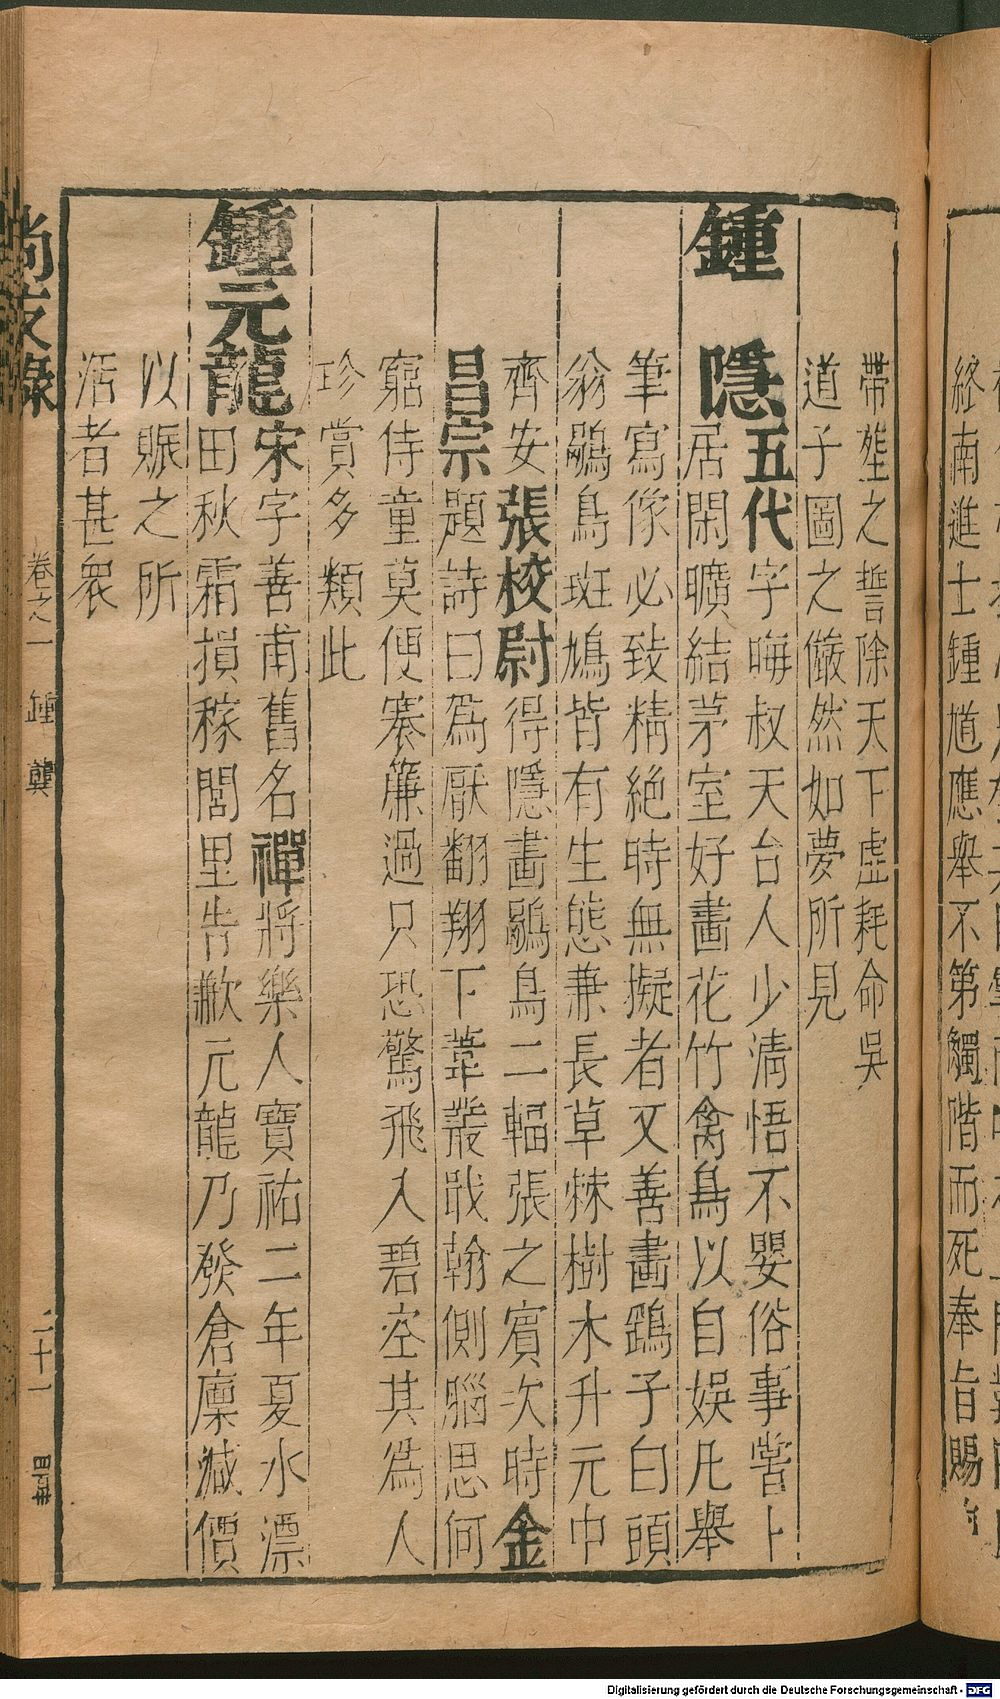 終南進士鍾馗應舉不第觸階而死奉旨賜
帶塟之誓除天下虛耗命吳
道子圖之儼然如夢所見
鍾隱五代字晦叔天台人少淸悟不嬰俗事嘗卜
居閑曠結茅室好畫花竹禽鳥以自娛凡舉
筆寫像必致精絶時無擬者又善畫鷂子白頭
翁鶡鳥斑鳩皆有生態兼長草棘樹木升元中
齊安張校尉得隱畫鶡鳥二輻張之賓次時金
昌宗題詩曰爲厭翻翔下葦叢戢翰側腦思何
窮侍童莫便褰簾過只恐驚飛入碧空其爲人
珍賞多類此
鍾元龍宋字善甫舊名禪將樂人寶祐二年夏水漂
田秋霜損稼閭里告歉元龍乃發倉廩減價
以賑之所
活者甚衆
尚友錄 卷之一 鍾 龔 二十一
Digitalisierung gefördert durch die Deutsche Forschungsgemeinschaft - DFG